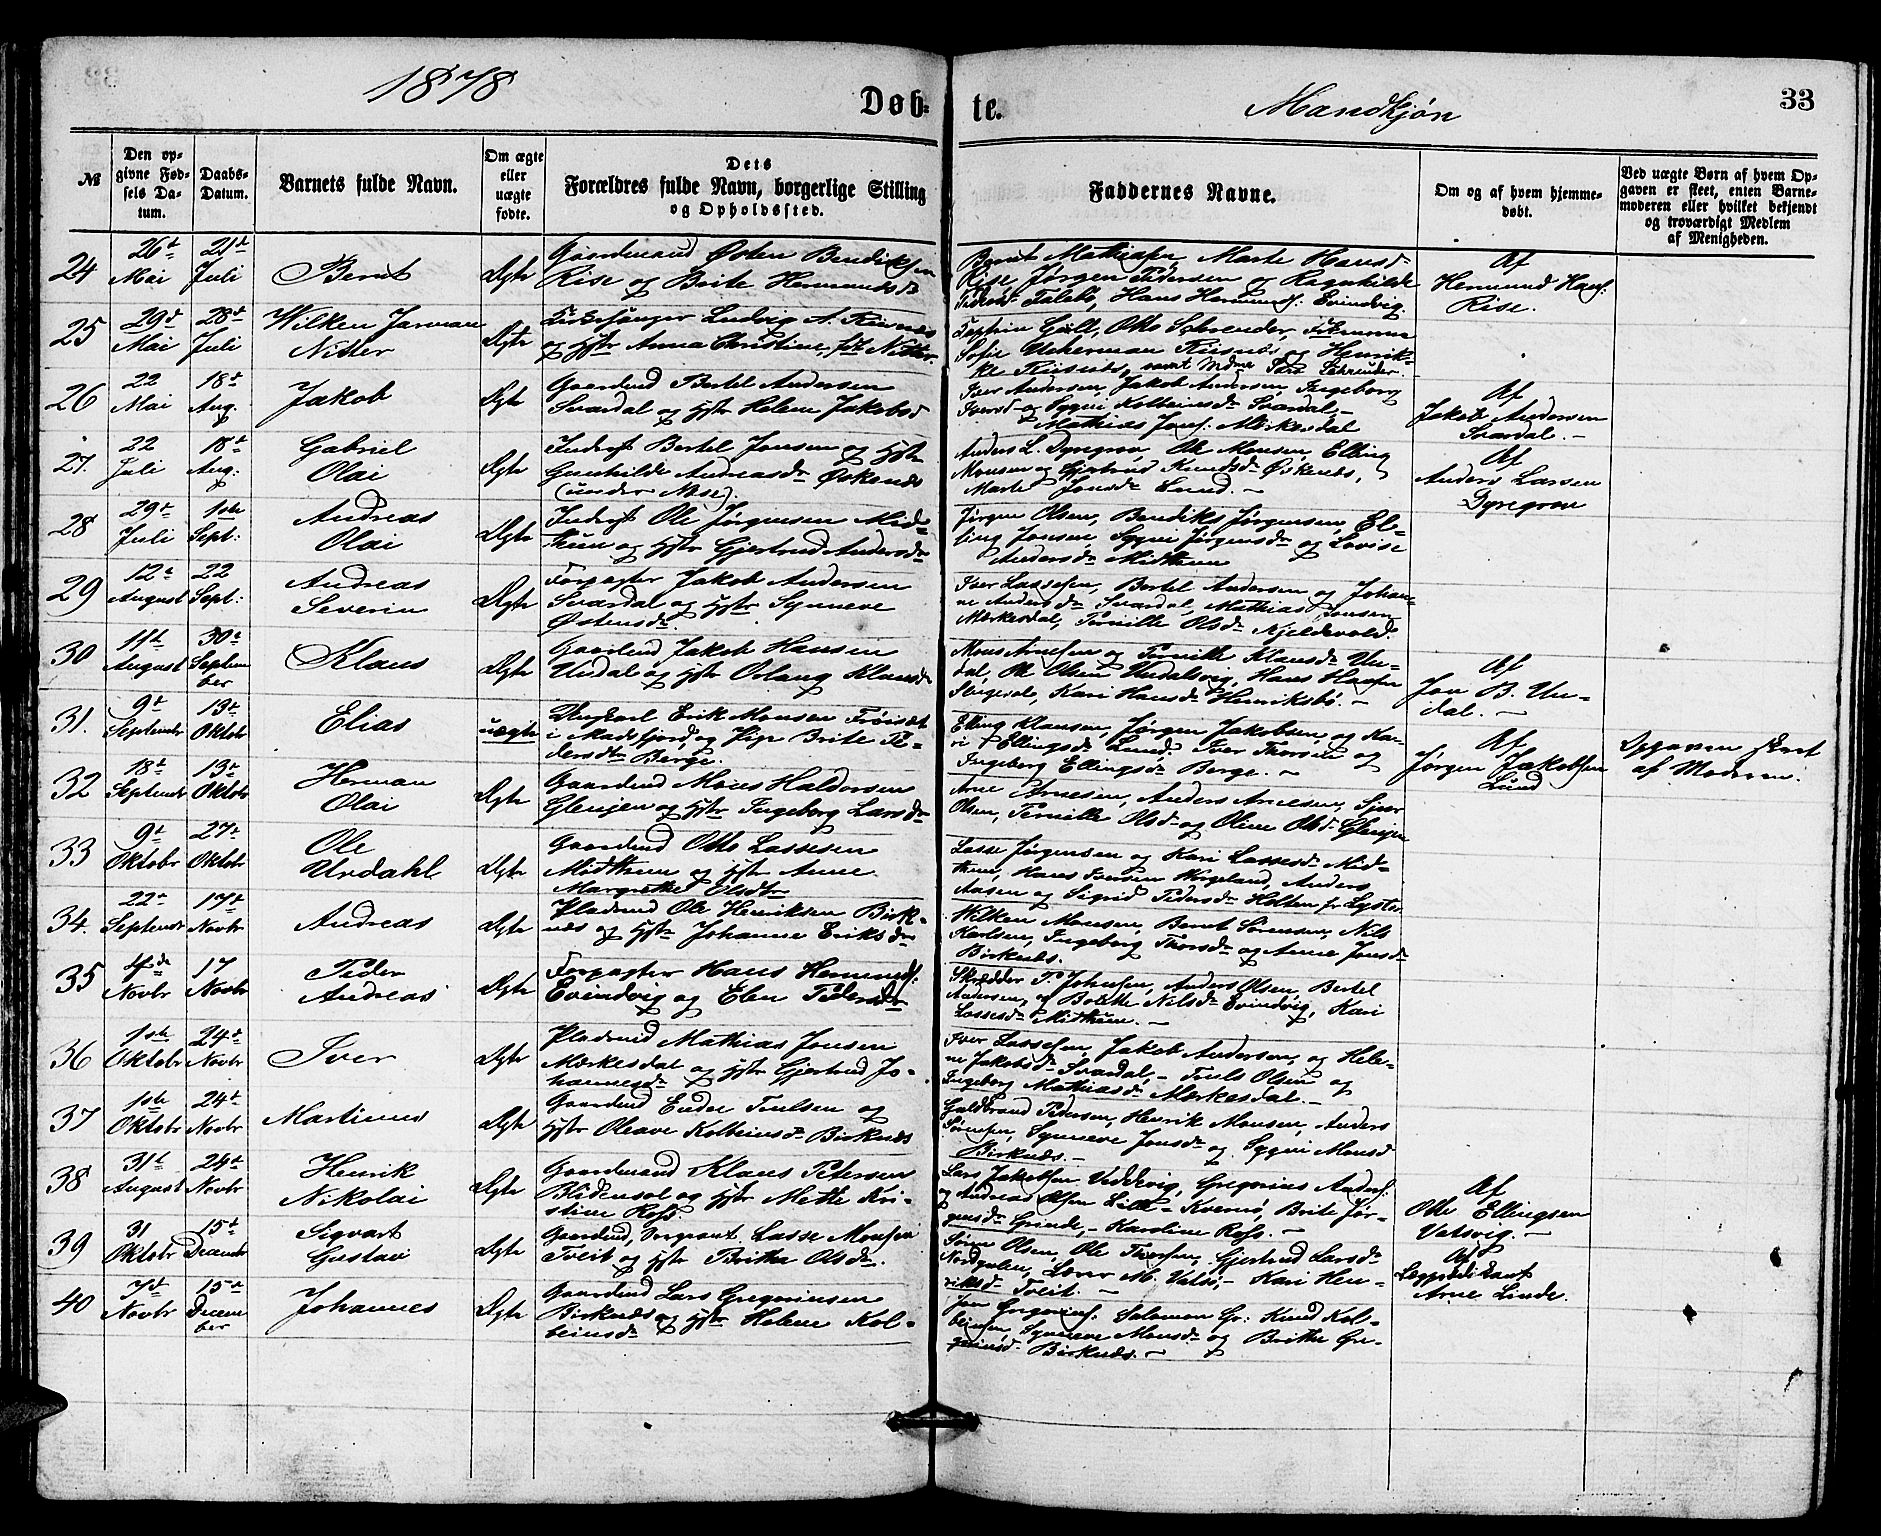 1878
Døb-te.
Mandkjøn
33
№
Den opgivne Fødsels Datum.
Daabs-Datum.
Barnets fulde Navn.
Om ægte eller uægte fødte.
Dets Forældres fulde Navn, borgerlige Stilling og Opholdssted.
Faddernes Navne.
Om og af hvem hjemmedøbt.
Ved uægte Børn af hvem Opgaven er skeet, enten Barnemoderen eller hvilket bekjendt og troværdigt Medlem af Menigheden.
24
26de Mai
21de Juli
Bernt
Ægte
Gaardmand Østen Bendiksen
Rise og Brite Hermundsdr
Bernt Mathiasen, Marte Hansd.
Rise, Jørgen Pedersen og Ragnhilde
Hans Hermunds. Evindvig.
Af
Hermund Hans.
Rise.
25
29de Mai
28de Juli
Wilken Jarman
Nitter
Ægte
Kirkesanger Ludvig A. Risnes
og Hstr Anna Christine, født Nitter.
Otto Schreuder, Frkrnerne
Sofie Uckerman Risnes og Henrik-
ke Risnes, samt Madme Schreuder.
26
22 Mai
18de Aug.
Jakob
Ægte
Gaardmd Bertel Andersen
Svardal og Hstr Helene Jakobsd
Iver Andersen, Jakob Andersen, Ingeborg
Iversd og Sygni Kolbeinsdr Svardal,
Mathias Jons. Mærkesdal
Af
Jakob Andersen
Svardal.
27.
22 Juli
18de Aug:
Gabriel
Olai
Ægte
Inderst Bertel Jonsen og Hstr
Gunhilde Andreasdr Øskenes
(under Næse).
Anders L. Dyregrov, Ole Monsen, Elling
Monsen og Gjertrud Knudsdr Øskenes,
Marte Jonsdr Lund.
Af
Anders Larsen
Dyregrov
28
29de Juli
1ste Sept:
Andreas
Olai
Ægte
Inderst Ole Jørgensen Mid-
thun og Hstr Gjertrud Andersdr
Jørgen Olsen, Bendiks Jørgensen, El-
ling Jonsen Sygni Jørgensdr og Lovise
Andersdr Midthun
29
12te August
22 Sept:
Andreas
Severin
Ægte
Forpagter Jakob Andersen
Svardal og Hstr Synneve
Østensdr.
Iver Lassesen, Bertel Andersen og Johan-
ne Andersdr Svardal, Mathias Jonsen
Mærkesdal, Pernille Olsdr Kjeldevold.
30
11te August
30te September
Klaus
Ægte
Gaardmd Jakob Hansen
Undal og Hstr Oslaug Klausdr
Mons Arnesen og Pernille Klausdr Un-
dal, Ole Olsen Undalsvig, Hans Hansen
Kari Hansdr Henriksbø.
Af
Jon B. Un-
dal.
31.
9de Septembr
13de Oktobr
Elias
uægte
Ungkarl Erik Monsen Frøiset
i Masfjord og Pige Brite Pe-
dersdtr Berge.
Elling Klausen, Jørgen Jakobsen og Ka-
ri Ellingsdr Lund, Iver Thorsen og
Ingeborg Ellingsdr Berge.
Af
Jørgen Jakobsen
Lund
Opgaven skeet
af Moderen.
32
18de Septembr
13de Oktobr
Herman
Olai
Ægte
Gaardmd Mons Haldorsen
Glenjen og Hstr Ingeborg Larsdr
Arne Arnesen, Anders Arnesen, Sjur
Olsen, Pernille Olsdr og Oline Olsdr Glenjen
33
9de Oktobr
27de Oktobr
Ole
Urdahl
Ægte
Gaardmd Otto Lassesen
Midthun og Hstr Anne
Margrethe Olsdtr
Lasse Jørgensen og Kari Lassesdr Mid-
thun, Hans Iversen Vergeland, Anders
Aasen og Sigrid Pedersdr Holten fr Lyster.
34.
22de Septembr
17de Novbr
Andreas
Ægte
Pladsmd Ole Henriksen Birk-
nes og Hstr Johanne Eriksdr
Wilken Monsen, Bernt Sørensen, Nils
Karlsen, Ingeborg Thorsdr og Anne Jonsdr
Birknes.
35
4de Novbr
17 Novbr
Peder
Andreas
Ægte
Forpagter Hans Hermunds.
Evindvig og Elen Pedersdr
Skrædder P. Johnsen, Anders Olsen, Bertel
Andersen, og Bolette Nilsdr Evindvig, Kari
Lassesdr Midthun.
36
1ste Oktobr
24de Novbr
Iver
Ægte
Pladsmd Mathias Jonsen
Mærkesdal og Hstr Gjertrud Jo-
hannesdr
Iver Lassesen, Jakob Andersen, og Hele-
ne Jakobsdr Svardal, Truls Olsen og
Ingeborg Mathiasdr Mærkesdal.
37
1ste Oktobr
24de Novbr
Martinus
Ægte
Gaardmd Endre Trulsen og
Hstr Oleave Kolbeinsdr Birknes
Guldbrand Pedersen, Henrik Monsen, Anders
Sørensen, Synneve Jonsdr og Sygni Monsd
Birknes.
38
31te August
24de Novbr
Henrik
Nikolai
Ægte
Gaardmand Klaus Petersen
Blidensol og Hstr Mette Kri-
stine Ross.
Lars Jakobsen Veddevig, Gregorius Anders.
og Andreas Olsen Lille-Kvernø, Brite Jør-
gensdr Grinde, Karoline Ross.
Af
Otto Ellingsen
Vatsvig.
39
31 Oktobr
15de Decembr
Sigvart
Gustav
Ægte
Gaardmd, Sergeant Lasse Monsen
Tveit og Hstr Britha Olsdr.
Søren Olsen, Ole Thorsen, Gjertrud Larsdr
Nordgulen, Lærer M. Vatsø, Kari Hen-
riksdr Tveit.
Af
Lægprædikant
Arne Linde.
40
7de Novbr
15de December
Johannes
Ægte
Gaardmd Lars Gregoriussen
Birknes og Hstr Helene Kol-
beinsdr
Jon Gregorius. Salomon Gr: Knud Kol-
beinsen, Synneve Monsdr og Brithe Gre-
goriusd. Birknes.